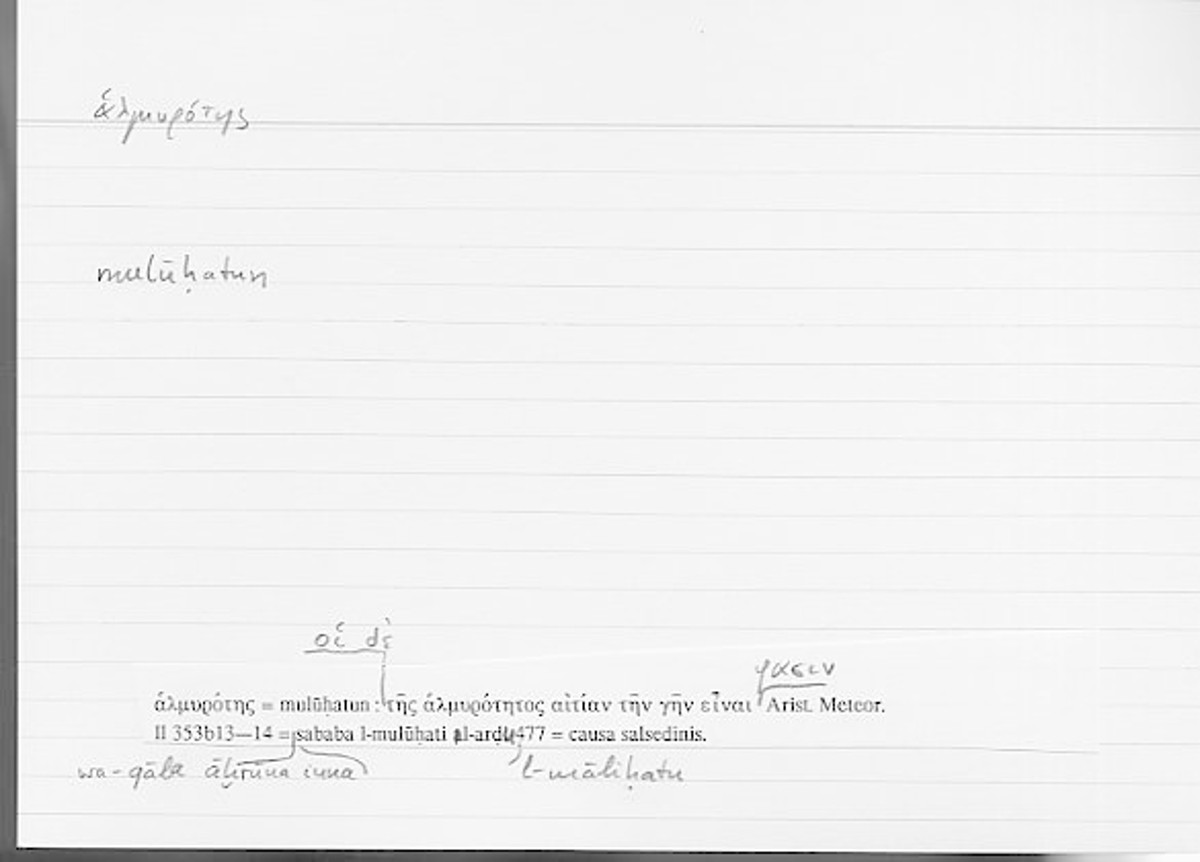 ἁλμυρότης
mulūḥatun
οἱ δὲ
φασιν
ἁλμυρότης = mulūḥatun : τῆς ἁλμυρότητος αἰτίαν τὴν γῆν εἶναι Arist. Meteor.
II 353b13—14 = sababa l-mulūḥati al-arḍu 477 = causa salsedinis.
wa-qāla āḫrūna inna l-māliḥatu